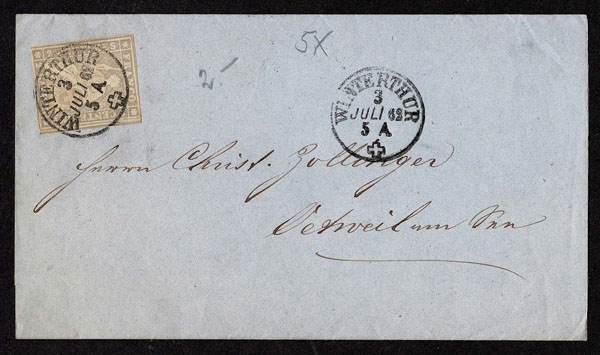 5X
2-
WINTERTHUR
3
JULI 62
5 A
WINTERTHUR
3
JULI 62
5 A
Herrn Christ. Zollinger
Oetweil am See